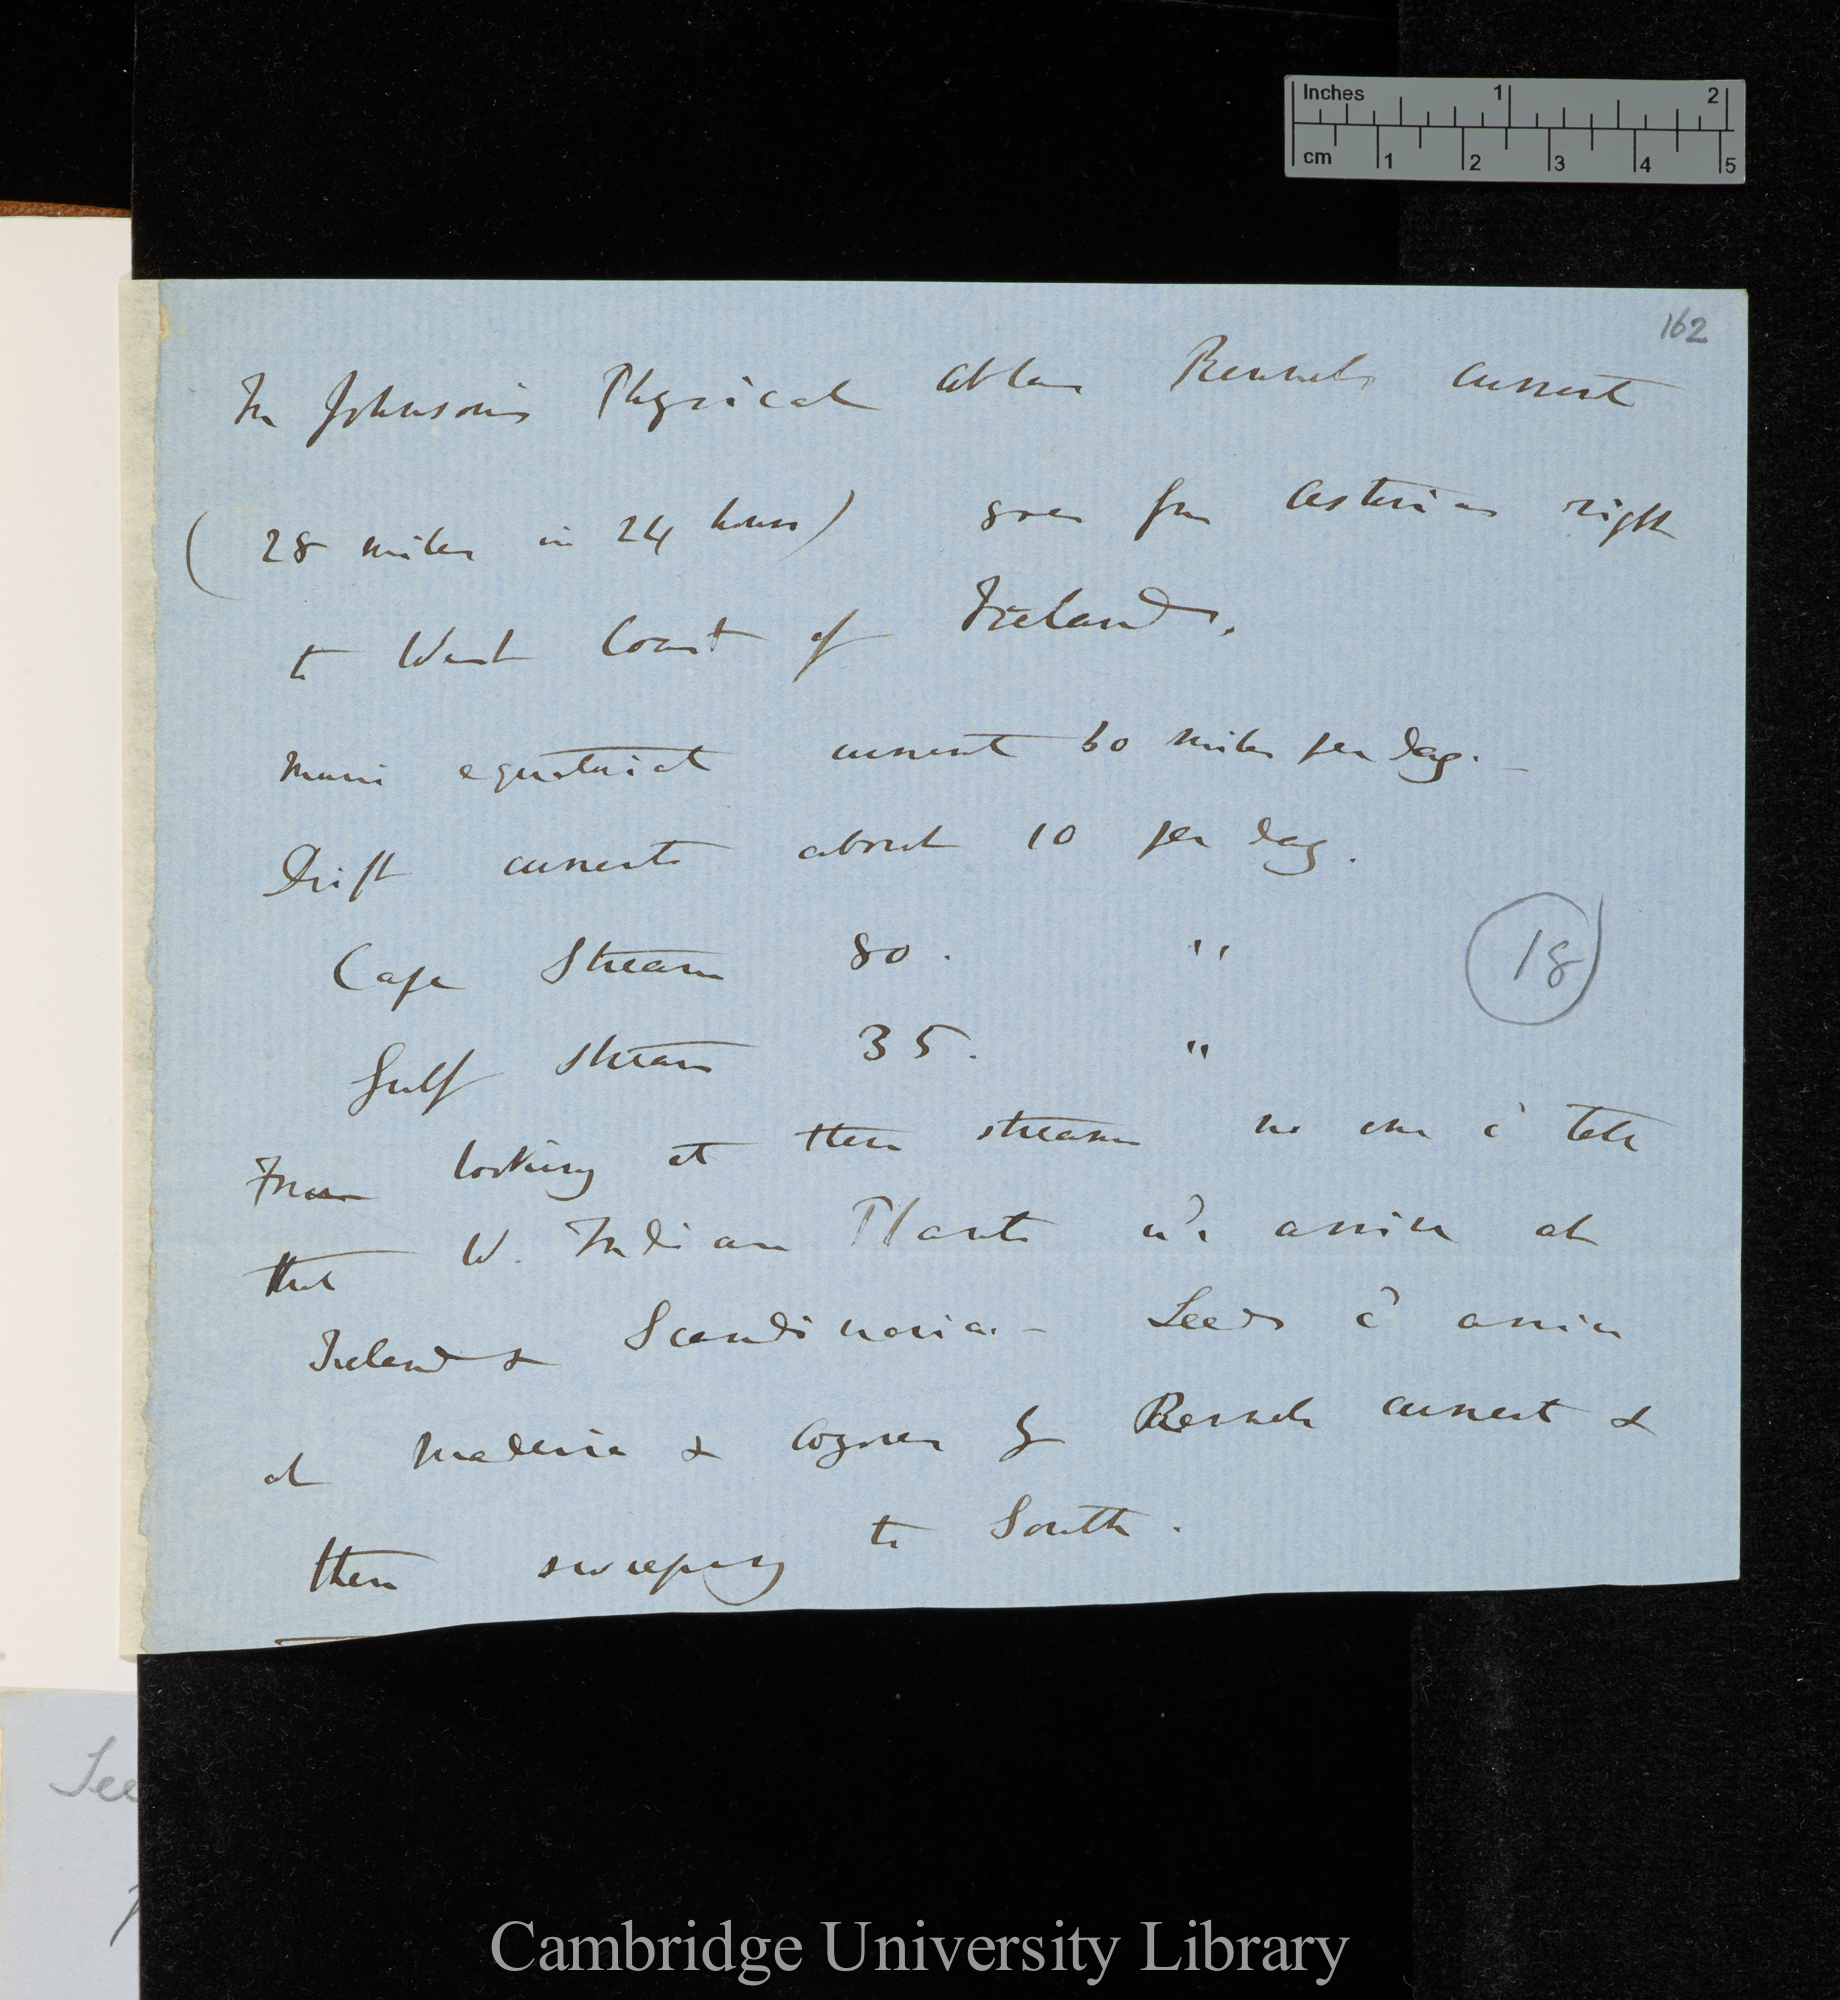 Inches 1 2
cm 1 2 3 4 5
162
In Johnson's Physical Atlas Rennels current
(28 miles in 24 hours) goes from Asturias right
to West Coast of Ireland.
Main equatorial current 60 miles per day. —
Drift currents about 10 per day.
Cape Stream 80. "
18
Gulf stream 35. "
From looking at these streams no one cd tell
that W. Indian Plants wd arrive at
Ireland & Scandinavia. — Seeds cd arrive
at Madeira & Azores by Rennels current &
then sweeping to South.
See
Cambridge University Library